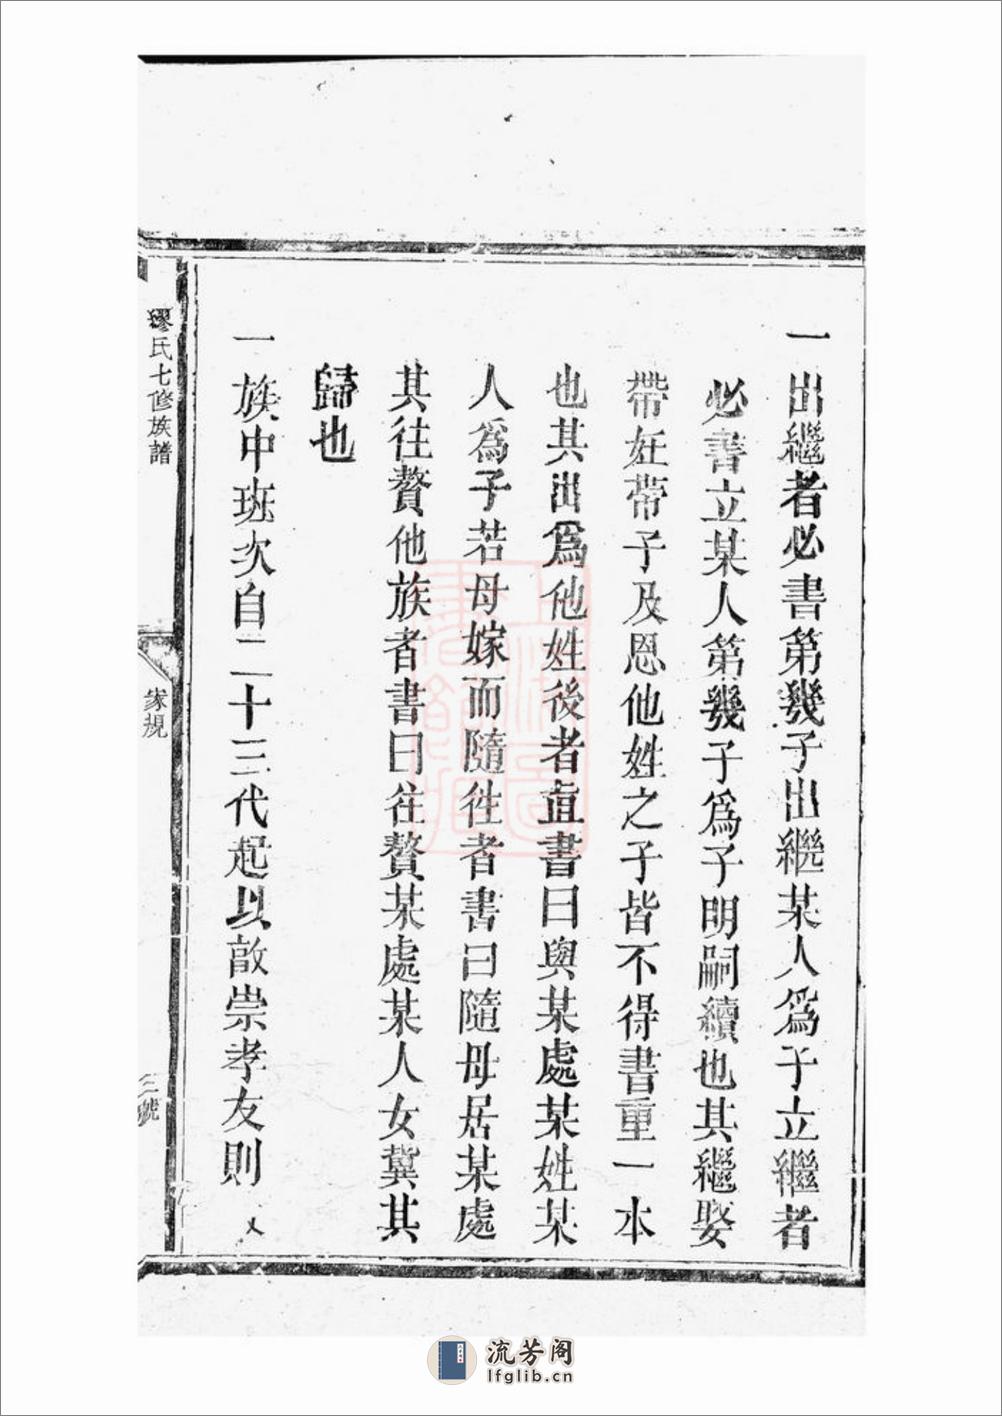 一出繼者必書第幾子出繼某人爲子立繼者
必書立某人第幾子爲子明嗣續也其繼娶
帶妊帶子及恩他姓之子皆不得書重一本
也其出爲他姓後者直書曰與某處某姓某
人爲子若母嫁而隨徃者書曰隨母居某處
其往贅他族者書曰往贅某處某人女冀其
歸也
一族中班次自二十三代起以敦崇孝友則
繆氏七修族譜
家規
三號
上海圖書館藏
流芳阁
lfglib.cn